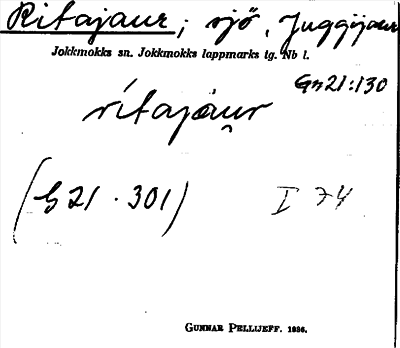 Ritajaur; sjö, Juggijaur
Jokkmokks sn. Jokkmokks lappmarks tg. Nb l.
Gn21:130
rítajáur̯
(G 21 · 301) I 74
GUNNAR PELLIJEFF. 1936.